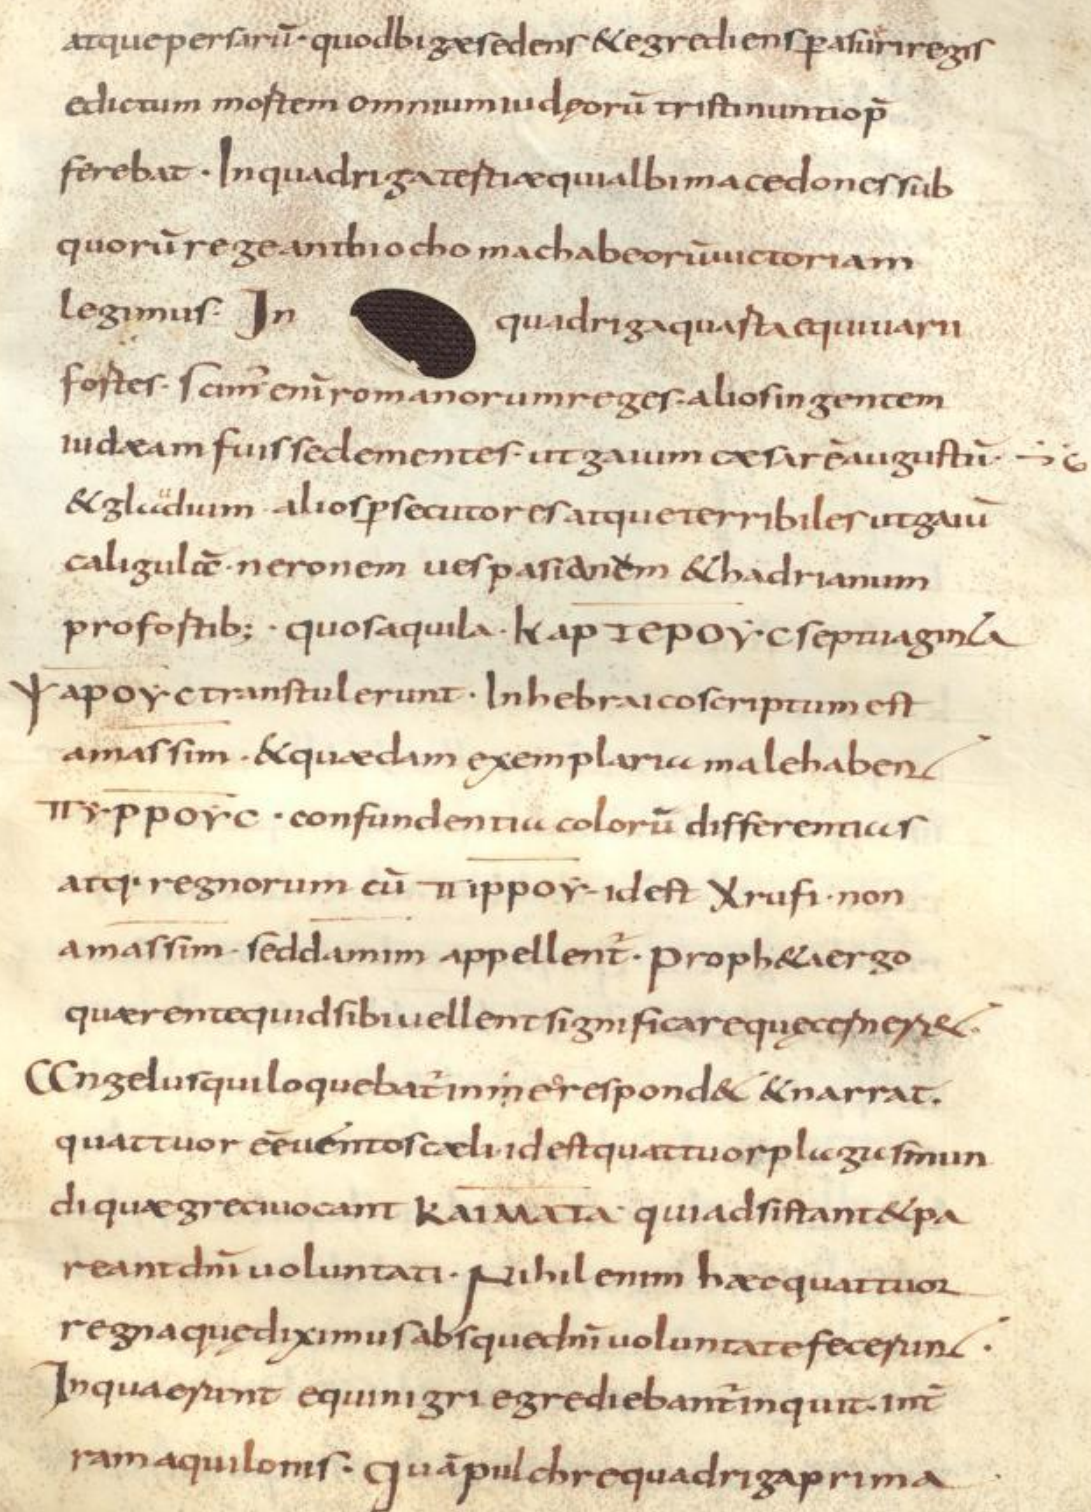 atquepersarū· quodbigæsedens &egredienspasuriregis
edictum mostem omniumiudęorū tristinuntiop̄
ferebat · Inquadrigatestiæquialbimacedonessub
quorūregeanthiocho machabeorūuictoriam
legimus· In quadrigaquastaequiuarii
fostes· Scim̄ enī romanorumreges· aliosingentem
iudæam fuisseclementes· utgaium cæsarēaugustū·
&glaudium· aliosꝑsecutoresatqueterribiles utgaiū
caligulā· neronem uespasianem &hadrianum
profostib; · quosaquila · ΚΑΡΤΕΡΟΥ·C septuaginta
ΨΑΡΟΥC transtulerunt · Inhebraicoscriptumest
amassim · &quædam exemplaria malehabent
ΠΥ·ΡΡΟΥC · confundentia colorū differentias
atq· regnorum cū ΠΙΡΡΟΥ· idest Xrufi · non
amassim · seddamim appellent᷑ · Proph&aergo
quærentequidsibiuellentsignificarequęcerner&·
Angelusquiloquebat᷑inmerespond& &narrat·
quattuor eēuentoscæli· idestquattuorplagasmun
diquægreciuocant ΚΛΙΜΑΤΑ· quiadsistant&pa
reantdn̄i uoluntati · Nihil enim hæcquattuor
regnaquędiximusabsquedn̄i uoluntatefecerunt ·
Inquaerunt equinigri egrediebant᷑inquit· int̄
ramaquilonis · Quāpulchrequadrigaprima